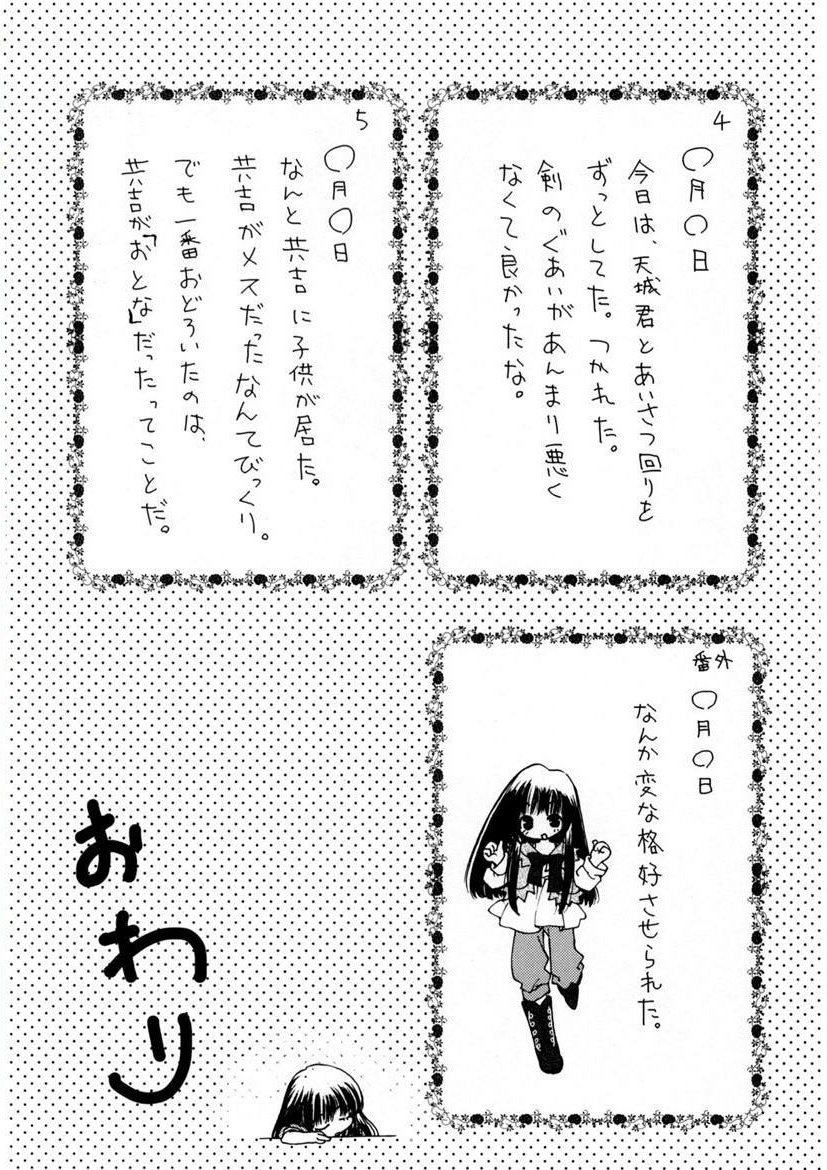 4
〇月〇日
今日は、天城君とあいさつ回りを
ずっとしてた。つかれた。
剣のぐあいがあんまり悪く
なくて良かったな。
5
〇月〇日
なんと共吉に子供が居た。
共吉がメスだったなんてびっくり。
でも一番おどろいたのは、
共吉が「おとな」だったってことだ。
番外
〇月〇日
なんか変な格好させられた。
おわり